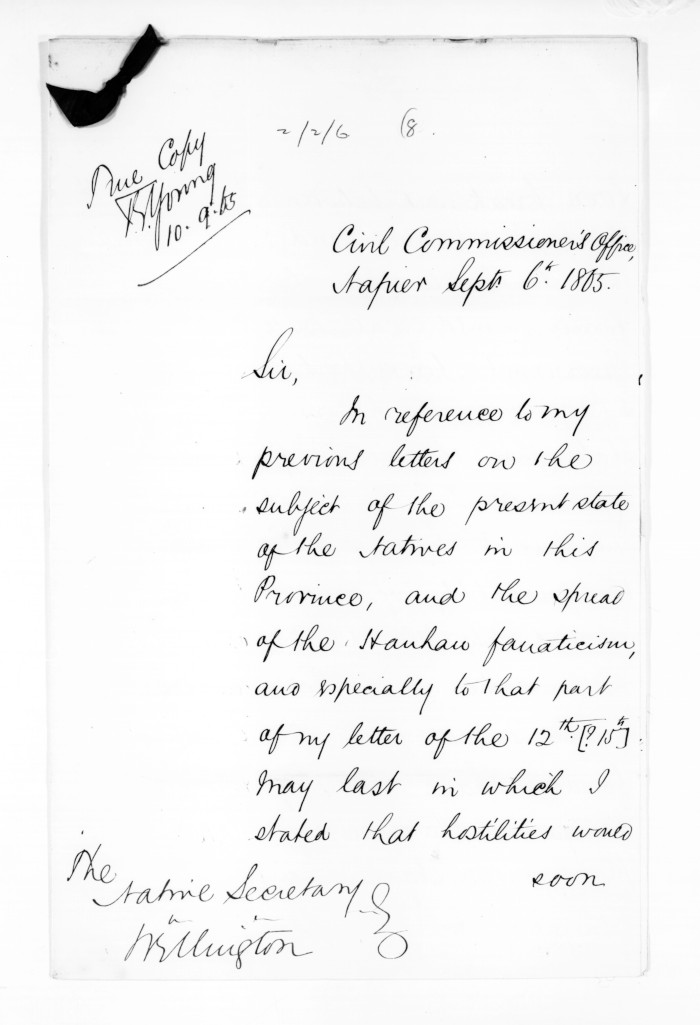 2/2/6 (8.
True Copy
B. Young
10. 9. 65
Civil Commissioner's Office,
Napier Septr 6th 1865.
Sir,
In reference to my
previous letters on the
subject of the present state
of the Natives in this
Province, and the spread
of the Hauhau fanaticism,
and especially to that part
of my letter of the 12th [? 15th]
May last in which I
stated that hostilities would
soon
The
Native Secretary
Wellington